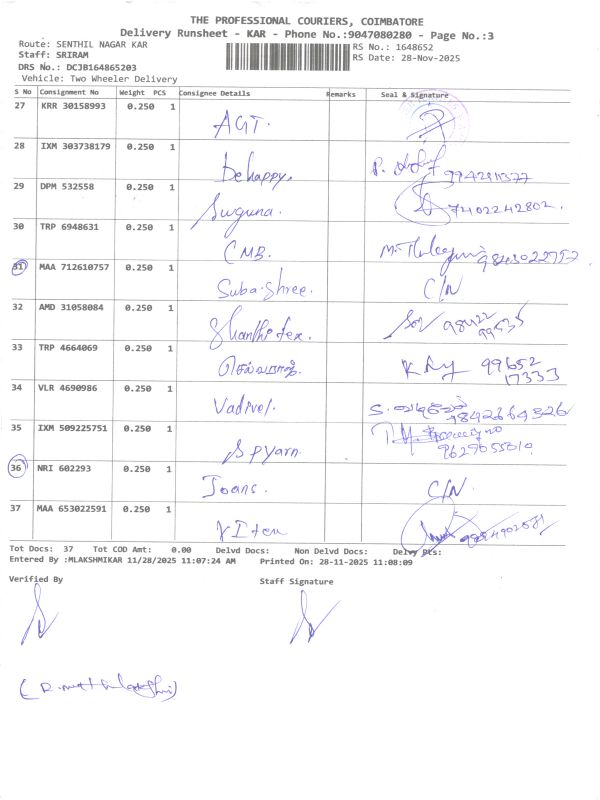 THE PROFESSIONAL COURIERS, COIMBATORE
Delivery Runsheet - KAR - Phone No.:9047080280 - Page No.:3
Route: SENTHIL NAGAR KAR
RS No.: 1648652
Staff: SRIRAM
RS Date: 28-Nov-2025
DRS No.: DCJB164865203
Vehicle: Two Wheeler Delivery
S No Consignment No Weight PCS Consignee Details Remarks Seal & Signature
27 KRR 30158993 0.250 1
AGT.
28 IXM 303738179 0.250 1
behappy.
29 DPM 532558 0.250 1
Suguna. 7402242802.
30 TRP 6948631 0.250 1
CMB. 9843022752
31 MAA 712610757 0.250 1
Suba.Shree. C/N
32 AMD 31058084 0.250 1
Shanthi tex. 98422
99535
33 TRP 4664069 0.250 1
செல்வராஜ். 99652
17333
34 VLR 4690986 0.250 1
Vadivel. 9842664326
35 IXM 509225751 0.250 1
S P yarn. 9629655310
36 NRI 602293 0.250 1
Joans. C/N.
37 MAA 653022591 0.250 1
V I tex
Tot Docs: 37 Tot COD Amt: 0.00 Delvd Docs: Non Delvd Docs: Delvy Pts:
Entered By :MLAKSHMIKAR 11/28/2025 11:07:24 AM Printed On: 28-11-2025 11:08:09
Verified By Staff Signature